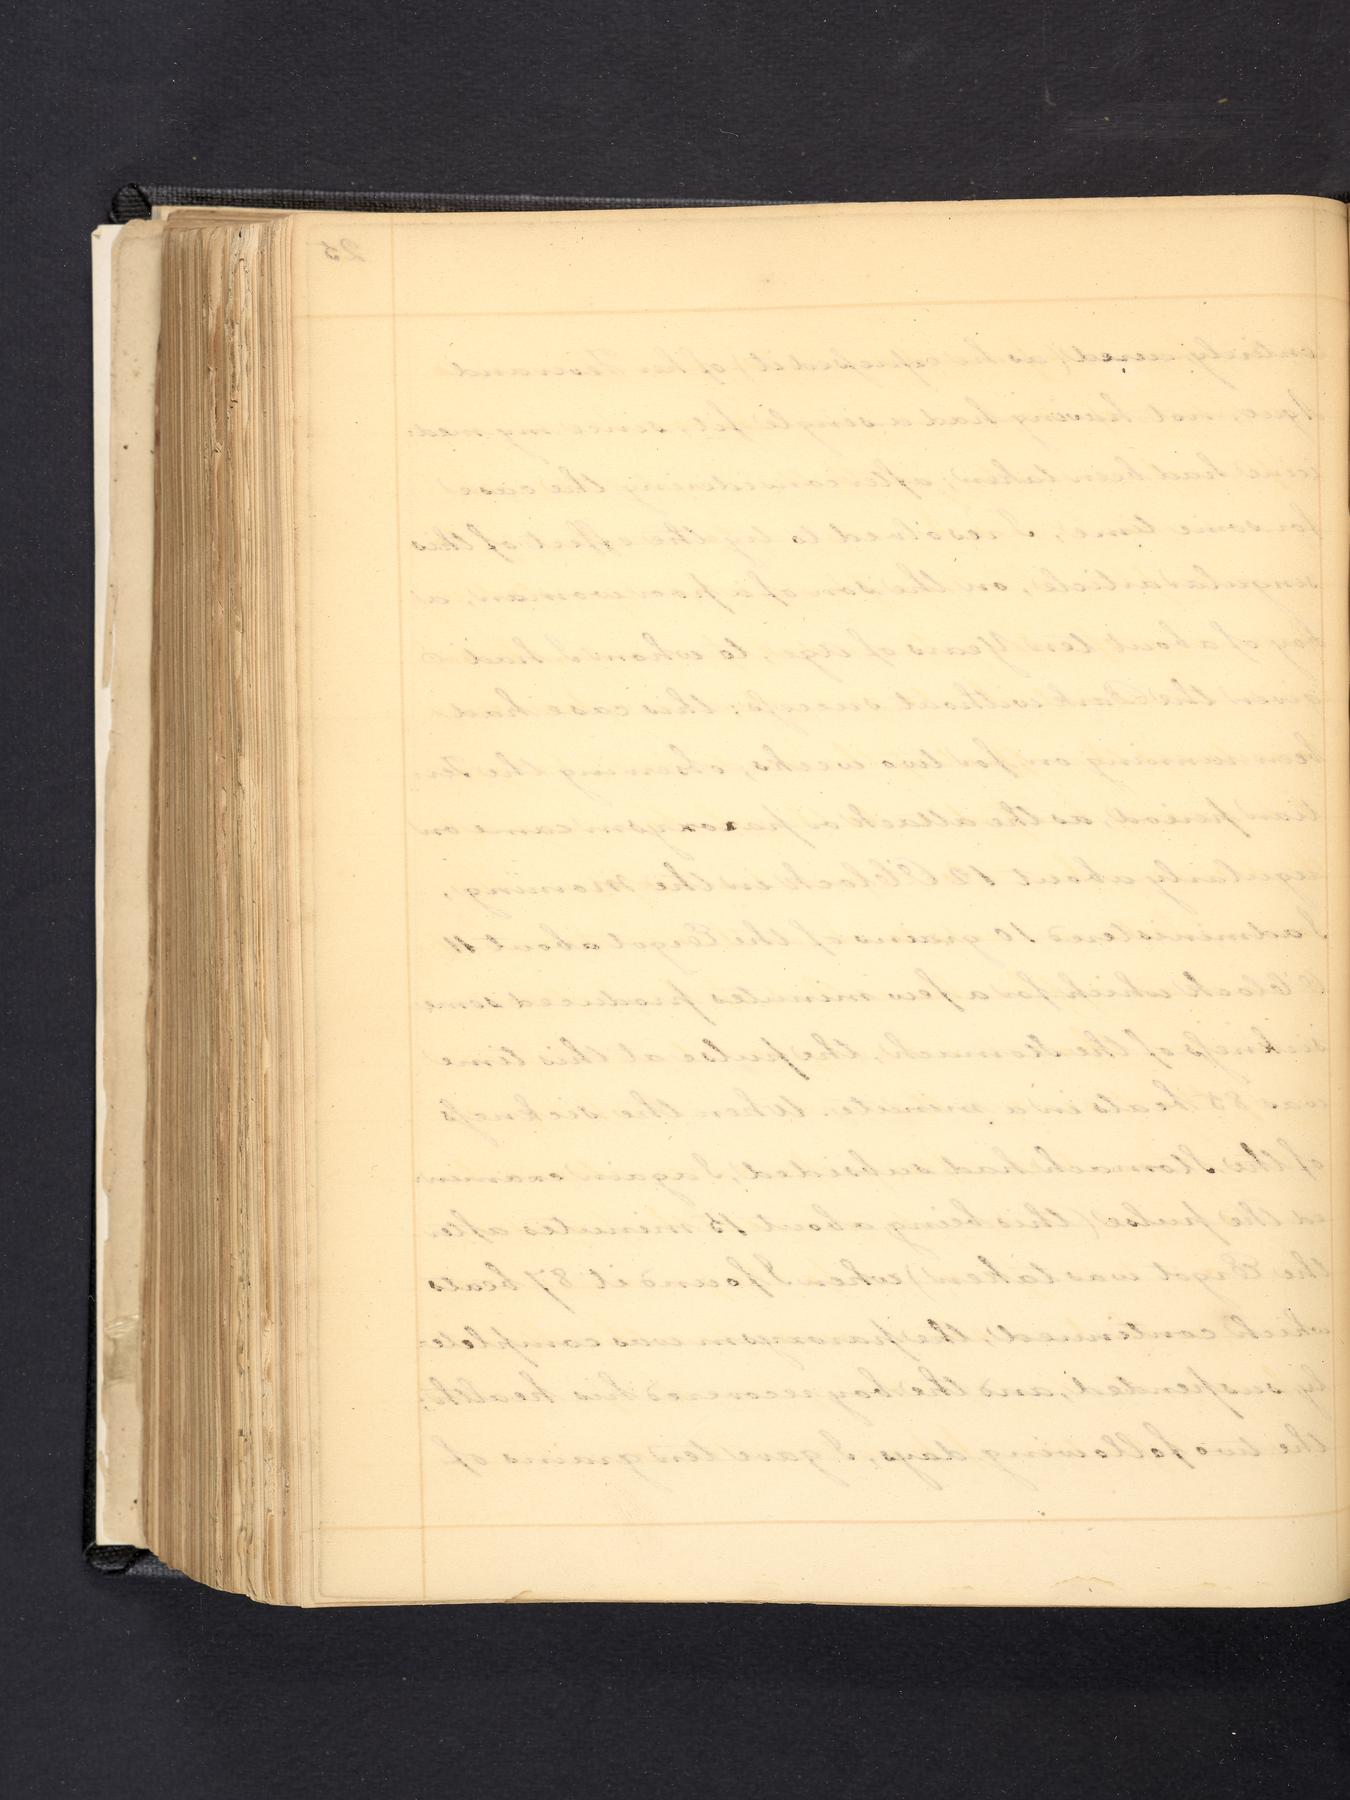 25
entirely cured (as he expressed it) of her Fever and
Ague, not having had a single fit, since my med:
icine had been taken; after considering the case
for some time, I resolved to try the effect of this
singular article, on the son of a poor woman, a
boy of about ten Years of age, to whom I had
given the Bark without success: this case had
been running on for two weeks, observing the Ter:
tian period, as the attack or paroxysm came on
regularly about 12 OClock in the Morning,
I administered 10 grains of the Ergot about 11
OClock which for a few minutes produced some
sickness of the Stomach, the pulse at this time
was 85 beats in a minute. When the sickness
of the Stomach had subsided, I again examin:
ed the pulse (this being about 15 minutes after
the Ergot was taken) when I found it 87 beats
which continued, the paroxysm was complete:
ly suspended, and the boy recovered his health;
the two following days, I gave ten grains of